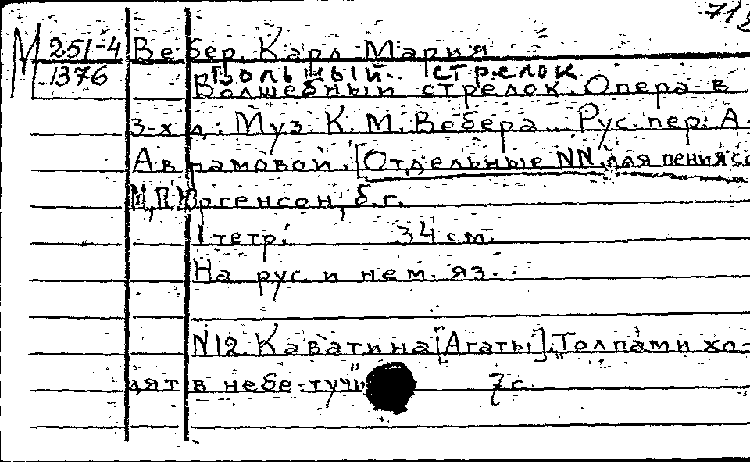 М 251-4 Вебер, Карл Мария
1376 Вольный стрелок
Волшебный стрелок. Опера в
3-х д. Муз. К. М. Вебера. Рус. пер. А.
Аврамовой. [Отдельные NN для пения со
М., П. Юргенсон, б. г.
1 тетр. 34 см.
На рус. и нем. яз.
N12. Каватина [Агаты]. "Толпами хо-
дят в небе тучи" 7 с.